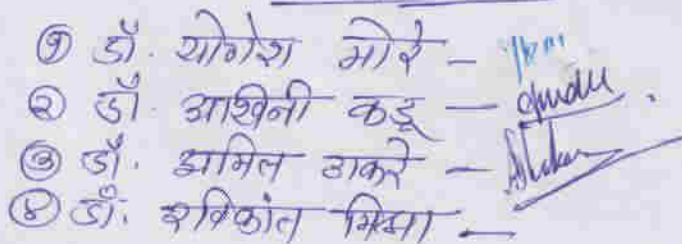 ① डॉ. योगेश मोरे -
② डॉ. अश्विनी कडू -
③ डॉ. अमिल ठाकरे -
④ डॉ. रविकांत मिश्रा -